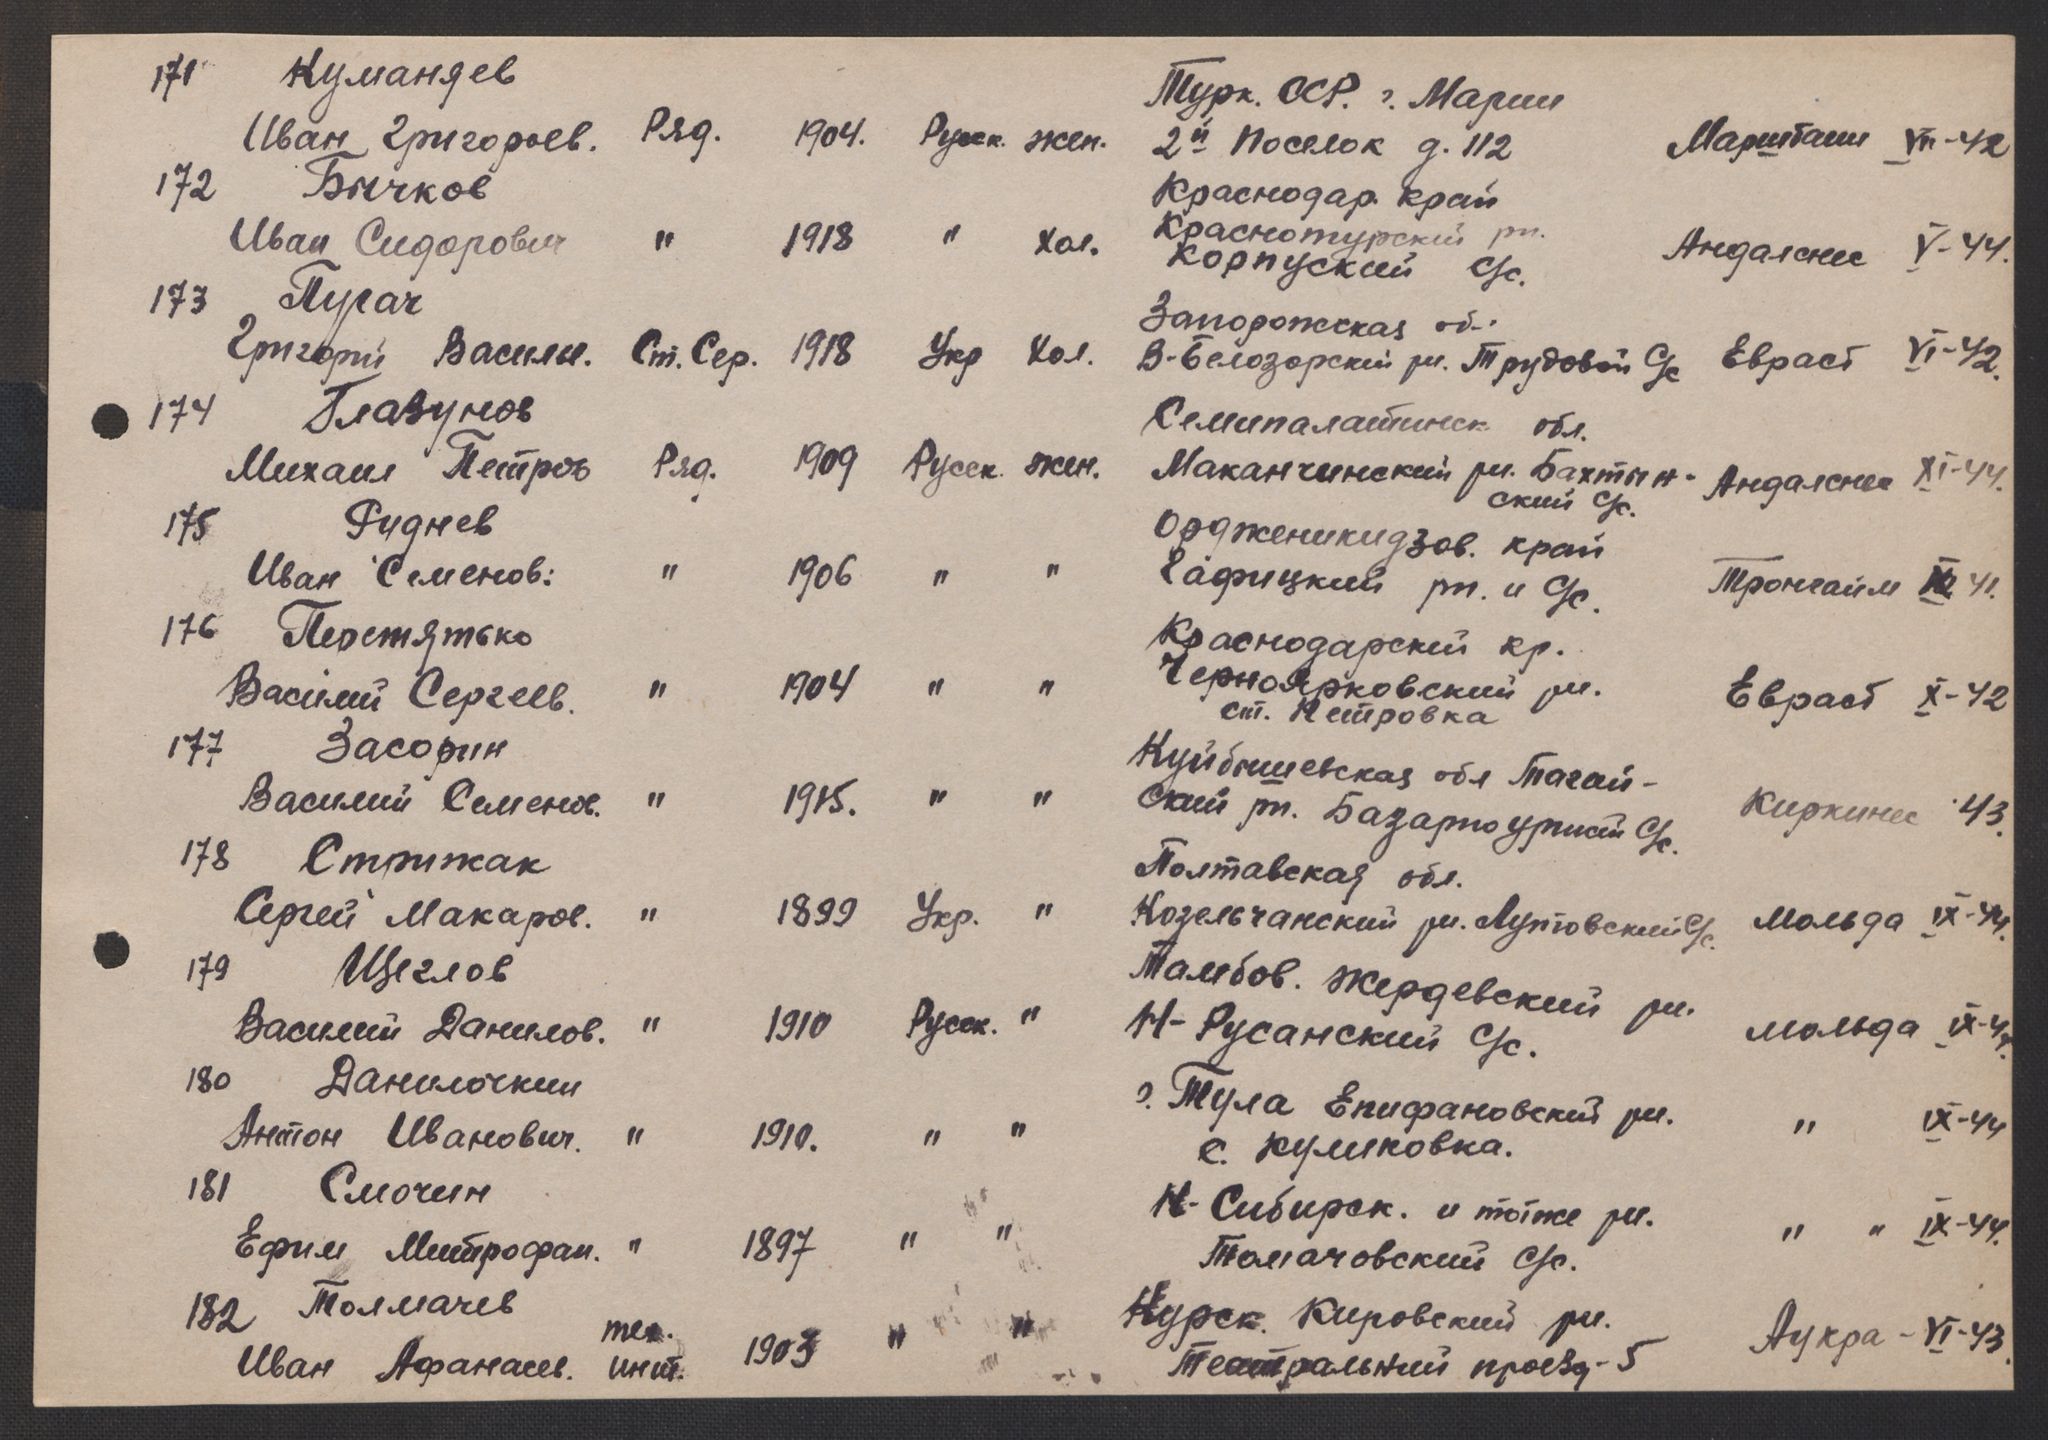 171 Куманяев
Иван Григорьев. Ряд. 1904. Русск. жен. Турк. ССР. г. Марии
2й Поселок д. 112 VII-42
172 Бычков
Иван Сидорович " 1918 " хол. Краснодар. край
рн.
Корпуский С/с. Андалснес V-44.
173 Пугач
Григорий Василь. Ст. Сер. 1918 Укр хол. Запорожская об.
В-Белозорский рн. Трудовой С/с Евраст VI-42.
174 Глазунов
Михаил Петров Ряд. 1909 Русск. жен. Семипалатинск обл.
Маканчинский рн. Бахтын-
ский С/с. Андалснес XI-44.
175 Руднев
Иван Семенов: " 1906 " " Орджениκидзов. край
рн. и С/с. Тронгайм 41.
176 Перетятько
Василий Сергеев. " 1904 " " Краснодарский кр.
Черноярковский рн.
ст. Петровка Евраст X-42
177 Засорин
Василий Семенов. " 1915. " " Куйбышевская обл Тагай-
ский рн. С/с. Киркинес 43.
178 Стрижак
Сергей Макаров. " 1899 Укр. " Полтавская обл.
Козельчанский рн. С/с. Мольда IX-44.
179 Щеглов
Василий Данилов. " 1910 Русск. " Тамбов. Жердевский рн.
Н-Русанский С/с. Мольда IX-44.
180 Данилочкин
Антон Иванович. " 1910. " " г. Тула Епифановский рн.
с. Куликовка. " IX-44
181 Смочин
Ефим Митрофан. " 1897 " " Н-Сибирск. и тоже рн.
Томачовский С/с. " " IX-44.
182 Толмачев
Иван Афанасев. тех. инт. 1903 " " Курск. Кировский рн.
Театральный проезд-5 Аукра - VI-43.